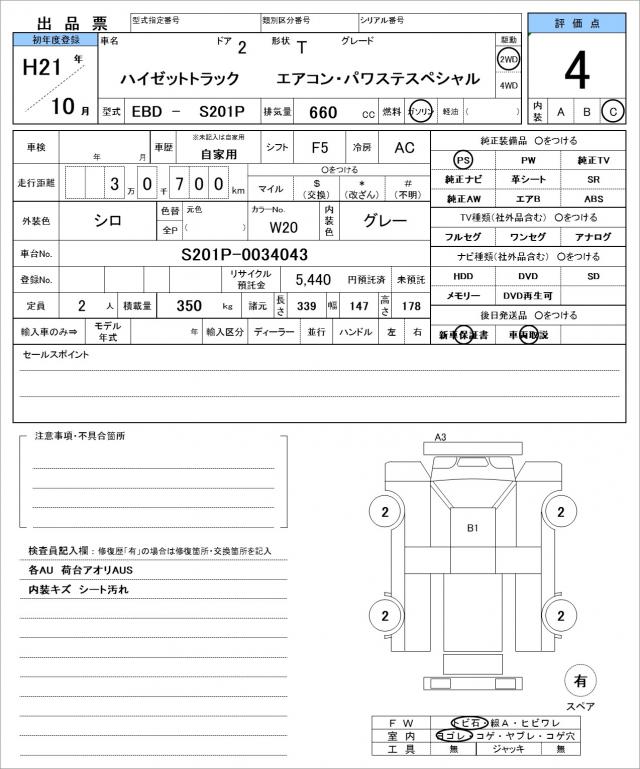 出品票 型式指定番号 類別区分番号 シリアル番号 評価点
初年度登録 車名 ドア 2 形状 T グレード 駆動
H21 年 ハイゼットトラック エアコン・パワステスペシャル 2WD 4
4WD
10 月 型式 EBD － S201P 排気量 660 cc 燃料 ガソリン 軽油 ( ) 内装 A B C
車検 年 月 車歴 ※未記入は自家用 自家用 シフト F5 冷房 AC 純正装備品 ○をつける
PS PW 純正TV
走行距離 3 万 0 千 7 0 0 km ○をつける
マイル $ (交換) * (改ざん) # (不明) 純正ナビ 革シート SR
純正AW エアB ABS
外装色 シロ 色替 元色 カラーNo. W20 内装色 グレー TV種類(社外品含む) ○をつける
全P ( ) フルセグ ワンセグ アナログ
車台No. S201P-0034043 ナビ種類(社外品含む) ○をつける
登録No. リサイクル預託金 5,440 円預託済 未預託 HDD DVD SD
定員 2 人 積載量 350 kg 諸元 長さ 339 幅 147 高さ 178 メモリー DVD再生可
後日発送品 ○をつける
輸入車のみ⇒ モデル年式 年 輸入区分 ディーラー 並行 ハンドル 左 右 新車保証書 車両取説
セールスポイント
注意事項・不具合箇所
A3
2 2
B1
検査員記入欄：修復歴「有」の場合は修復箇所・交換箇所を記入
各AU 荷台アオリAUS
内装キズ シート汚れ
2 2
有
スペア
FW トビ石・線A・ヒビワレ
室内 ヨゴレ・コゲ・ヤブレ・コゲ穴
工具 無 ジャッキ 無